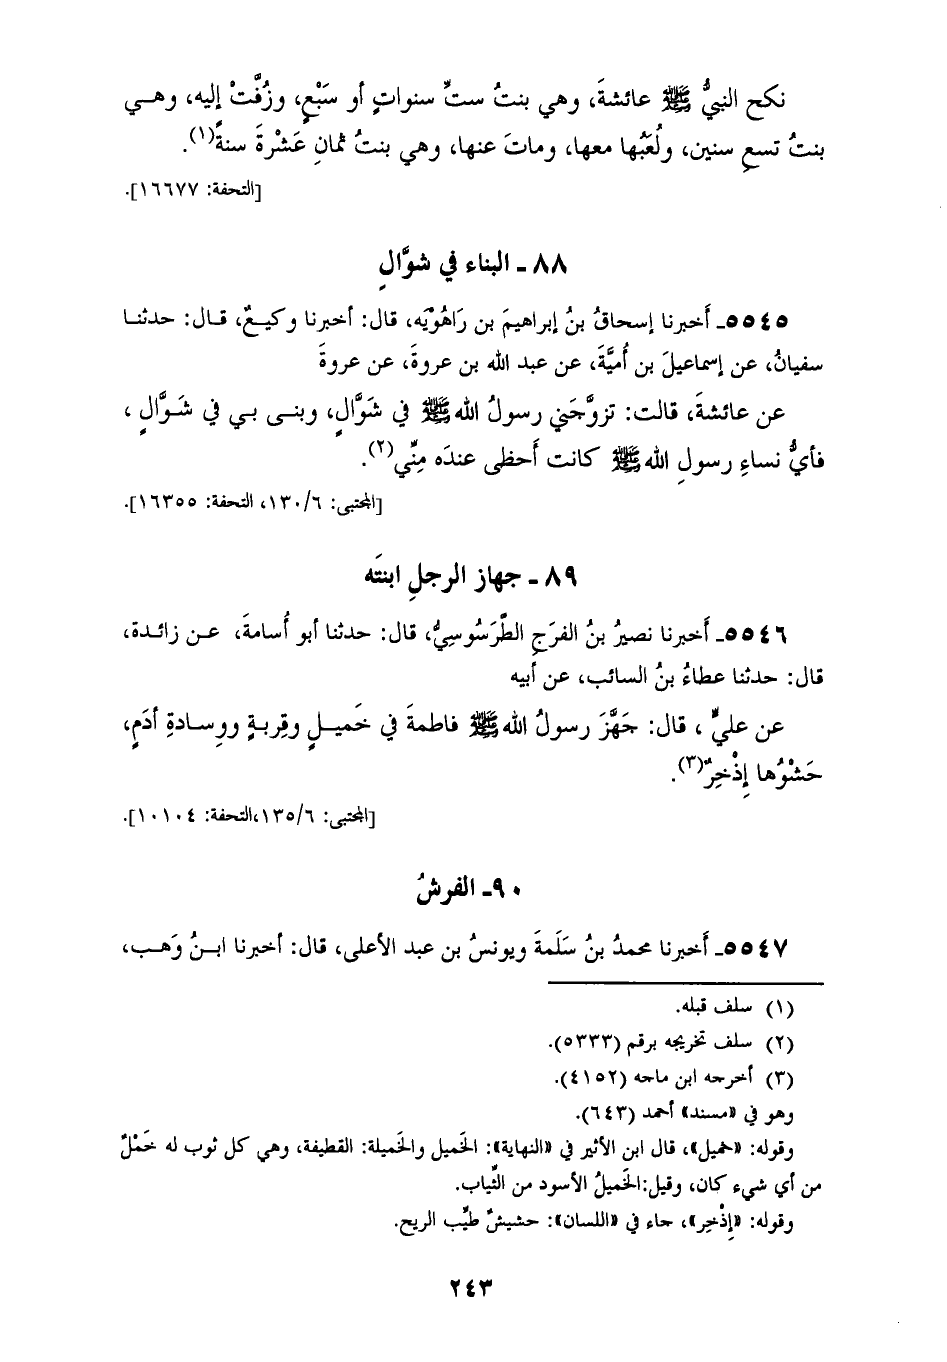 نكح النبيُّ ﷺ عائشةَ، وهي بنتُ ستِّ سنواتٍ أو سَبْعٍ، وزُفَّتْ إليه، وهـي
بنتُ تسعِ سنين، ولُعَبُها معها، وماتَ عنها، وهي بنتُ ثمانِ عَشْرةَ سنةً(١).
[التحفة: ١٦٦٧٧].
٨٨ ـ البناء في شوَّالٍ
٥٥٤٥ـ أَخبرنا إسحاقُ بنُ إبراهيمَ بن رَاهُوْيَه، قال: أخبرنا وكيـعٌ، قـال: حدثنـا
سفيانُ، عن إسماعيلَ بن أُميَّةَ، عن عبد الله بن عروةَ، عن عروةَ
عن عائشةَ، قالت: تزوَّجَني رسولُ الله ﷺ في شَوَّالٍ، وبنـى بـي في شَـوَّالٍ ،
فأيُّ نساءِ رسولِ الله ﷺ كانت أَحظى عندَه مِنِّي(٢).
[المجتبى: ١٣٠/٦، التحفة: ١٦٣٥٥].
٨٩ ـ جهاز الرجلِ ابنتَه
٥٥٤٦ـ أَخبرنا نصيرُ بنُ الفرَجِ الطَّرَسُوسِيُّ، قال: حدثنا أبو أُسامةَ، عـن زائـدة،
قال: حدثنا عطاءُ بنُ السائب، عن أبيه
عن عليٍّ ، قال: جَهَّزَ رسولُ الله ﷺ فاطمةَ في خَميـلٍ وقِربـةٍ ووِسـادةِ أدَمٍ،
حَشْوُها إِذْخِرٌ(٣).
[المجتبى: ١٣٥/٦،التحفة: ١٠١٠٤].
٩٠ـ الفرشُ
٥٥٤٧ـ أَخبرنا محمدُ بنُ سَلَمةَ ويونسُ بن عبد الأعلى، قال: أخبرنا ابـنُ وَهـب،
(١) سلف قبله.
(٢) سلف تخريجه برقم (٥٣٣٣).
(٣) أخرجه ابن ماجه (٤١٥٢).
وهو في «مسند» أحمد (٦٤٣).
وقوله: «خميل»، قال ابن الأثير في «النهاية»: الخَميل والخَميلة: القطيفة، وهي كل ثوب له خَمْلٌ
من أي شيء كان، وقيل:الخَميلُ الأسود من الثِّياب.
وقوله: «إِذْخِر»، جاء في «اللسان»: حشيشٌ طيِّب الريح.
٢٤٣